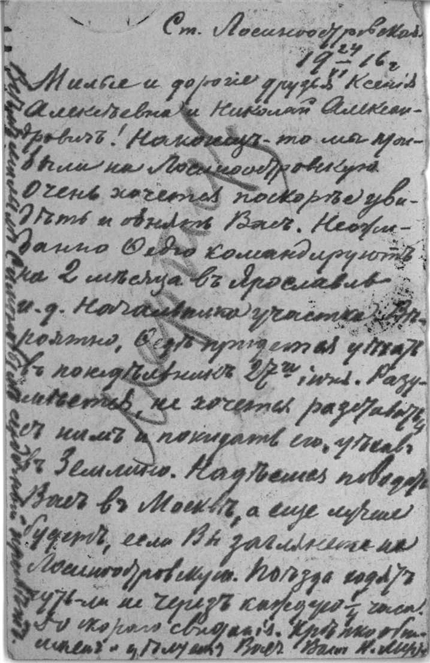 Ст. Лосиноостровская
19 24/VI 16 г
Милые и дорогие друзья Ксенія
Алексѣевна и Николай Алексан-
дровичъ! Наконецъ-то мы при-
были на Лосиноостровскую.
Очень хочется поскорѣе уви-
дѣть и обнять Васъ. Неожи-
данно Федю командируютъ
на 2 мѣсяца въ Ярославль
и.д. Начальника участка. Вѣ-
роятно, Федѣ придется уѣхать
въ понедѣльникъ 27го іюня. Разу-
мѣется, не хочется разставаться
съ нимъ и покидать его, уѣхавъ
въ Землино. Надѣемся повидать
Васъ въ Москвѣ, а еще лучше
будетъ, если Вы заглянете на
Лосиноостровскую. Поѣзда ходятъ
чуть-ли не черезъ каждую ½ часа.
До скораго свиданія. Крѣпко обни-
маемъ и цѣлуемъ Васъ. Ваши
сердечный привѣтъ.